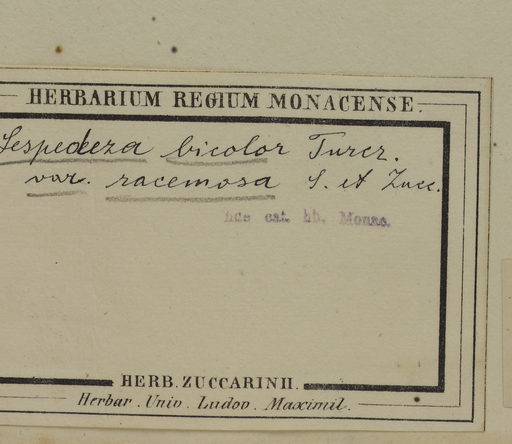 HERBARIUM REGIUM MONACENSE.
Lespedeza bicolor Turcz.
var. racemosa S. et Zucc.
hac cat. hb. Monac.
HERB. ZUCCARINII.
Herbar. Univ. Ludov. Maximil.